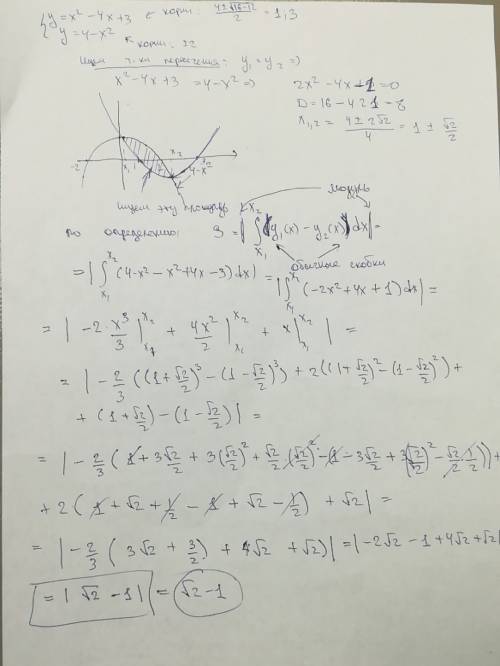 { y = x² - 4x + 3 ← корни: (4±√16-12)/2 = 1,3
y = 4-x²
корни: ±2
Ищем т-ки пересечения: y₁ = y₂ =>
x² - 4x + 3 = 4 - x² => 2x² - 4x - 1 = 0
D = 16 - 4·2·1 = 8
x₁,₂ = (4 ± 2√2)/4 = 1 ± √2/2
-2 x₁ x₂ 4-x²
ищем эту площадь модуль
по определению: S = | ∫ₓ₁ˣ² (y₁(x) - y₂(x)) dx | =
обычные скобки
= | ∫ₓ₁ˣ² (4-x² - x² + 4x - 3) dx | = | ∫ₓ₁ˣ² (-2x² + 4x + 1) dx | =
= | -2·x³/3 |ₓ₁ˣ² + 4x²/2 |ₓ₁ˣ² + x |ₓ₁ˣ² | =
= | -2/3 ((1+√2/2)³ - (1-√2/2)³) + 2((1+√2/2)² - (1-√2/2)²) +
+ (1+√2/2) - (1-√2/2) | =
= | -2/3 (1 + 3√2/2 + 3(√2/2)² + √2/2 (√2/2)² - (1 - 3√2/2 + 3(√2/2)² - √2/2·1/2)) +
+ 2(1 + √2 + 1/2 - 1 + √2 - 1/2) + √2 | =
= | -2/3 (3√2 + 3/2) + 4√2 + √2) | = | -2√2 - 1 + 4√2 + √2 |
= | √2 - 1 | = √2 - 1